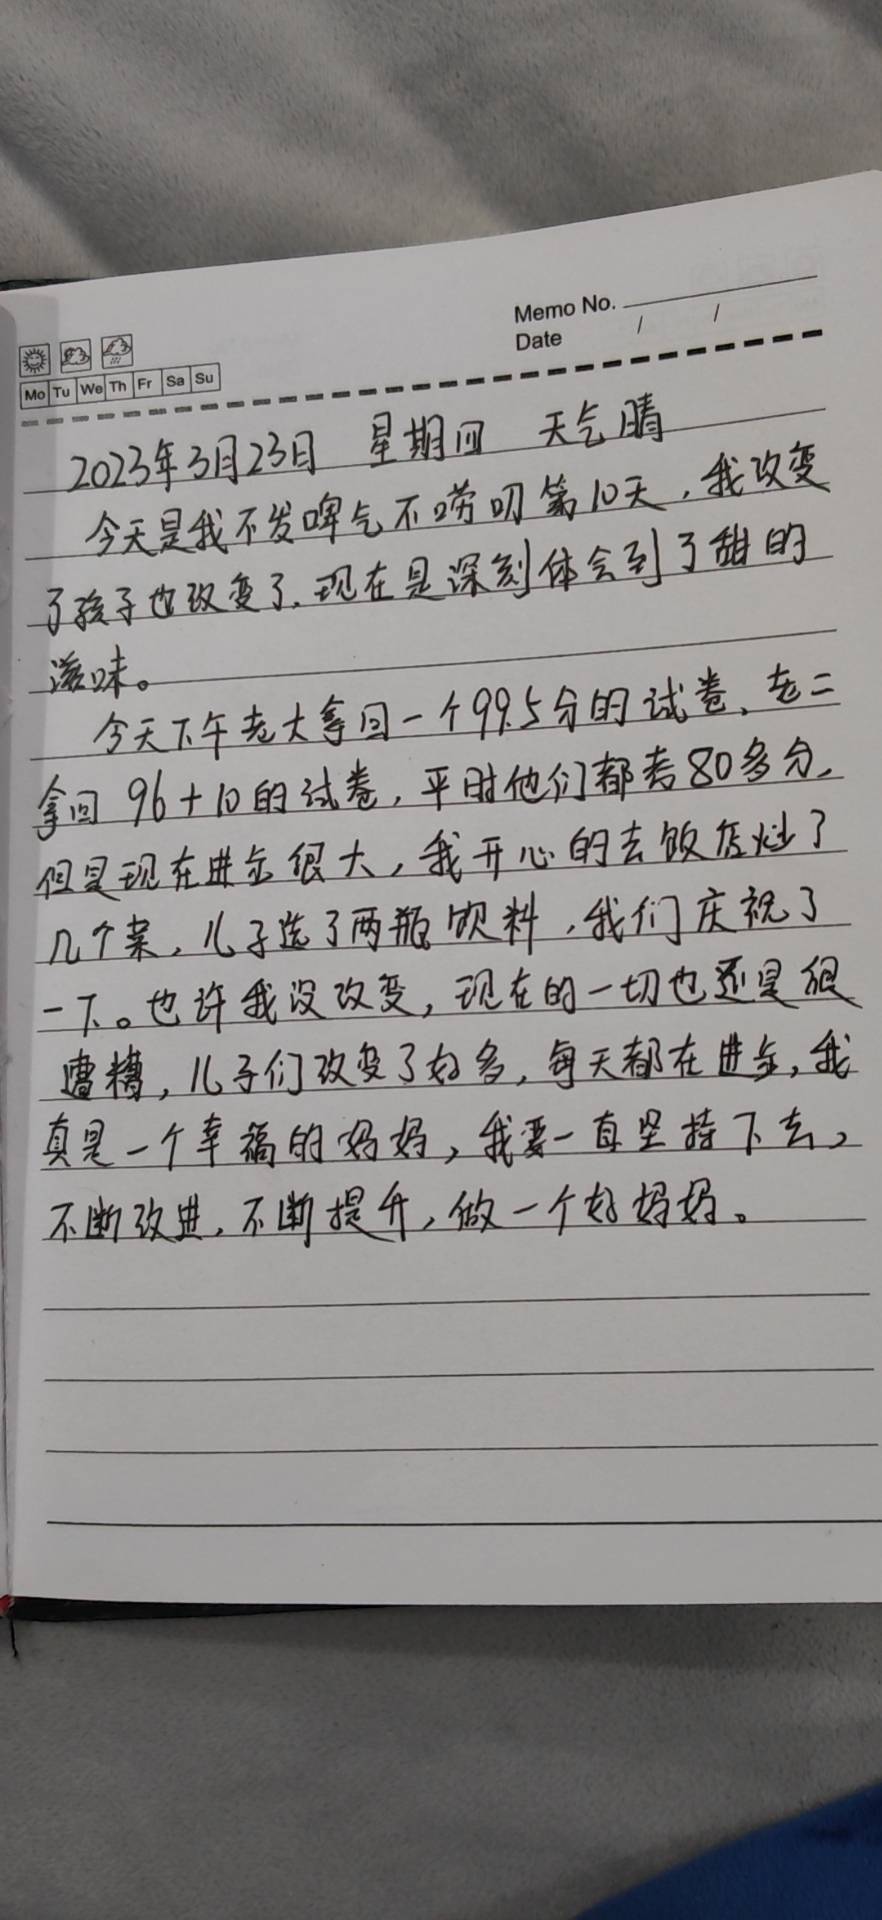 Memo No.
Date / /
Mo Tu We Th Fr Sa Su
2023年3月23日 星期四 天气晴
今天是我不发啤气不唠叨第10天，我改变
了孩子也改变了.现在是深刻体会到了甜的
滋味。
今天下午老大拿回一个99.5分的试卷、老二
拿回96+10的试卷，平时他们都考80多分，
但是现在进步很大，我开心的去饭店炒了
几个菜，儿子选了两瓶饮料，我们庆祝了
一下。也许我没改变，现在的一切也还是很
遭糟，儿子们改变了好多，每天都在进步，我
真是一个幸福的妈妈，我要一直坚持下去，
不断改进，不断提升，做一个好妈妈。